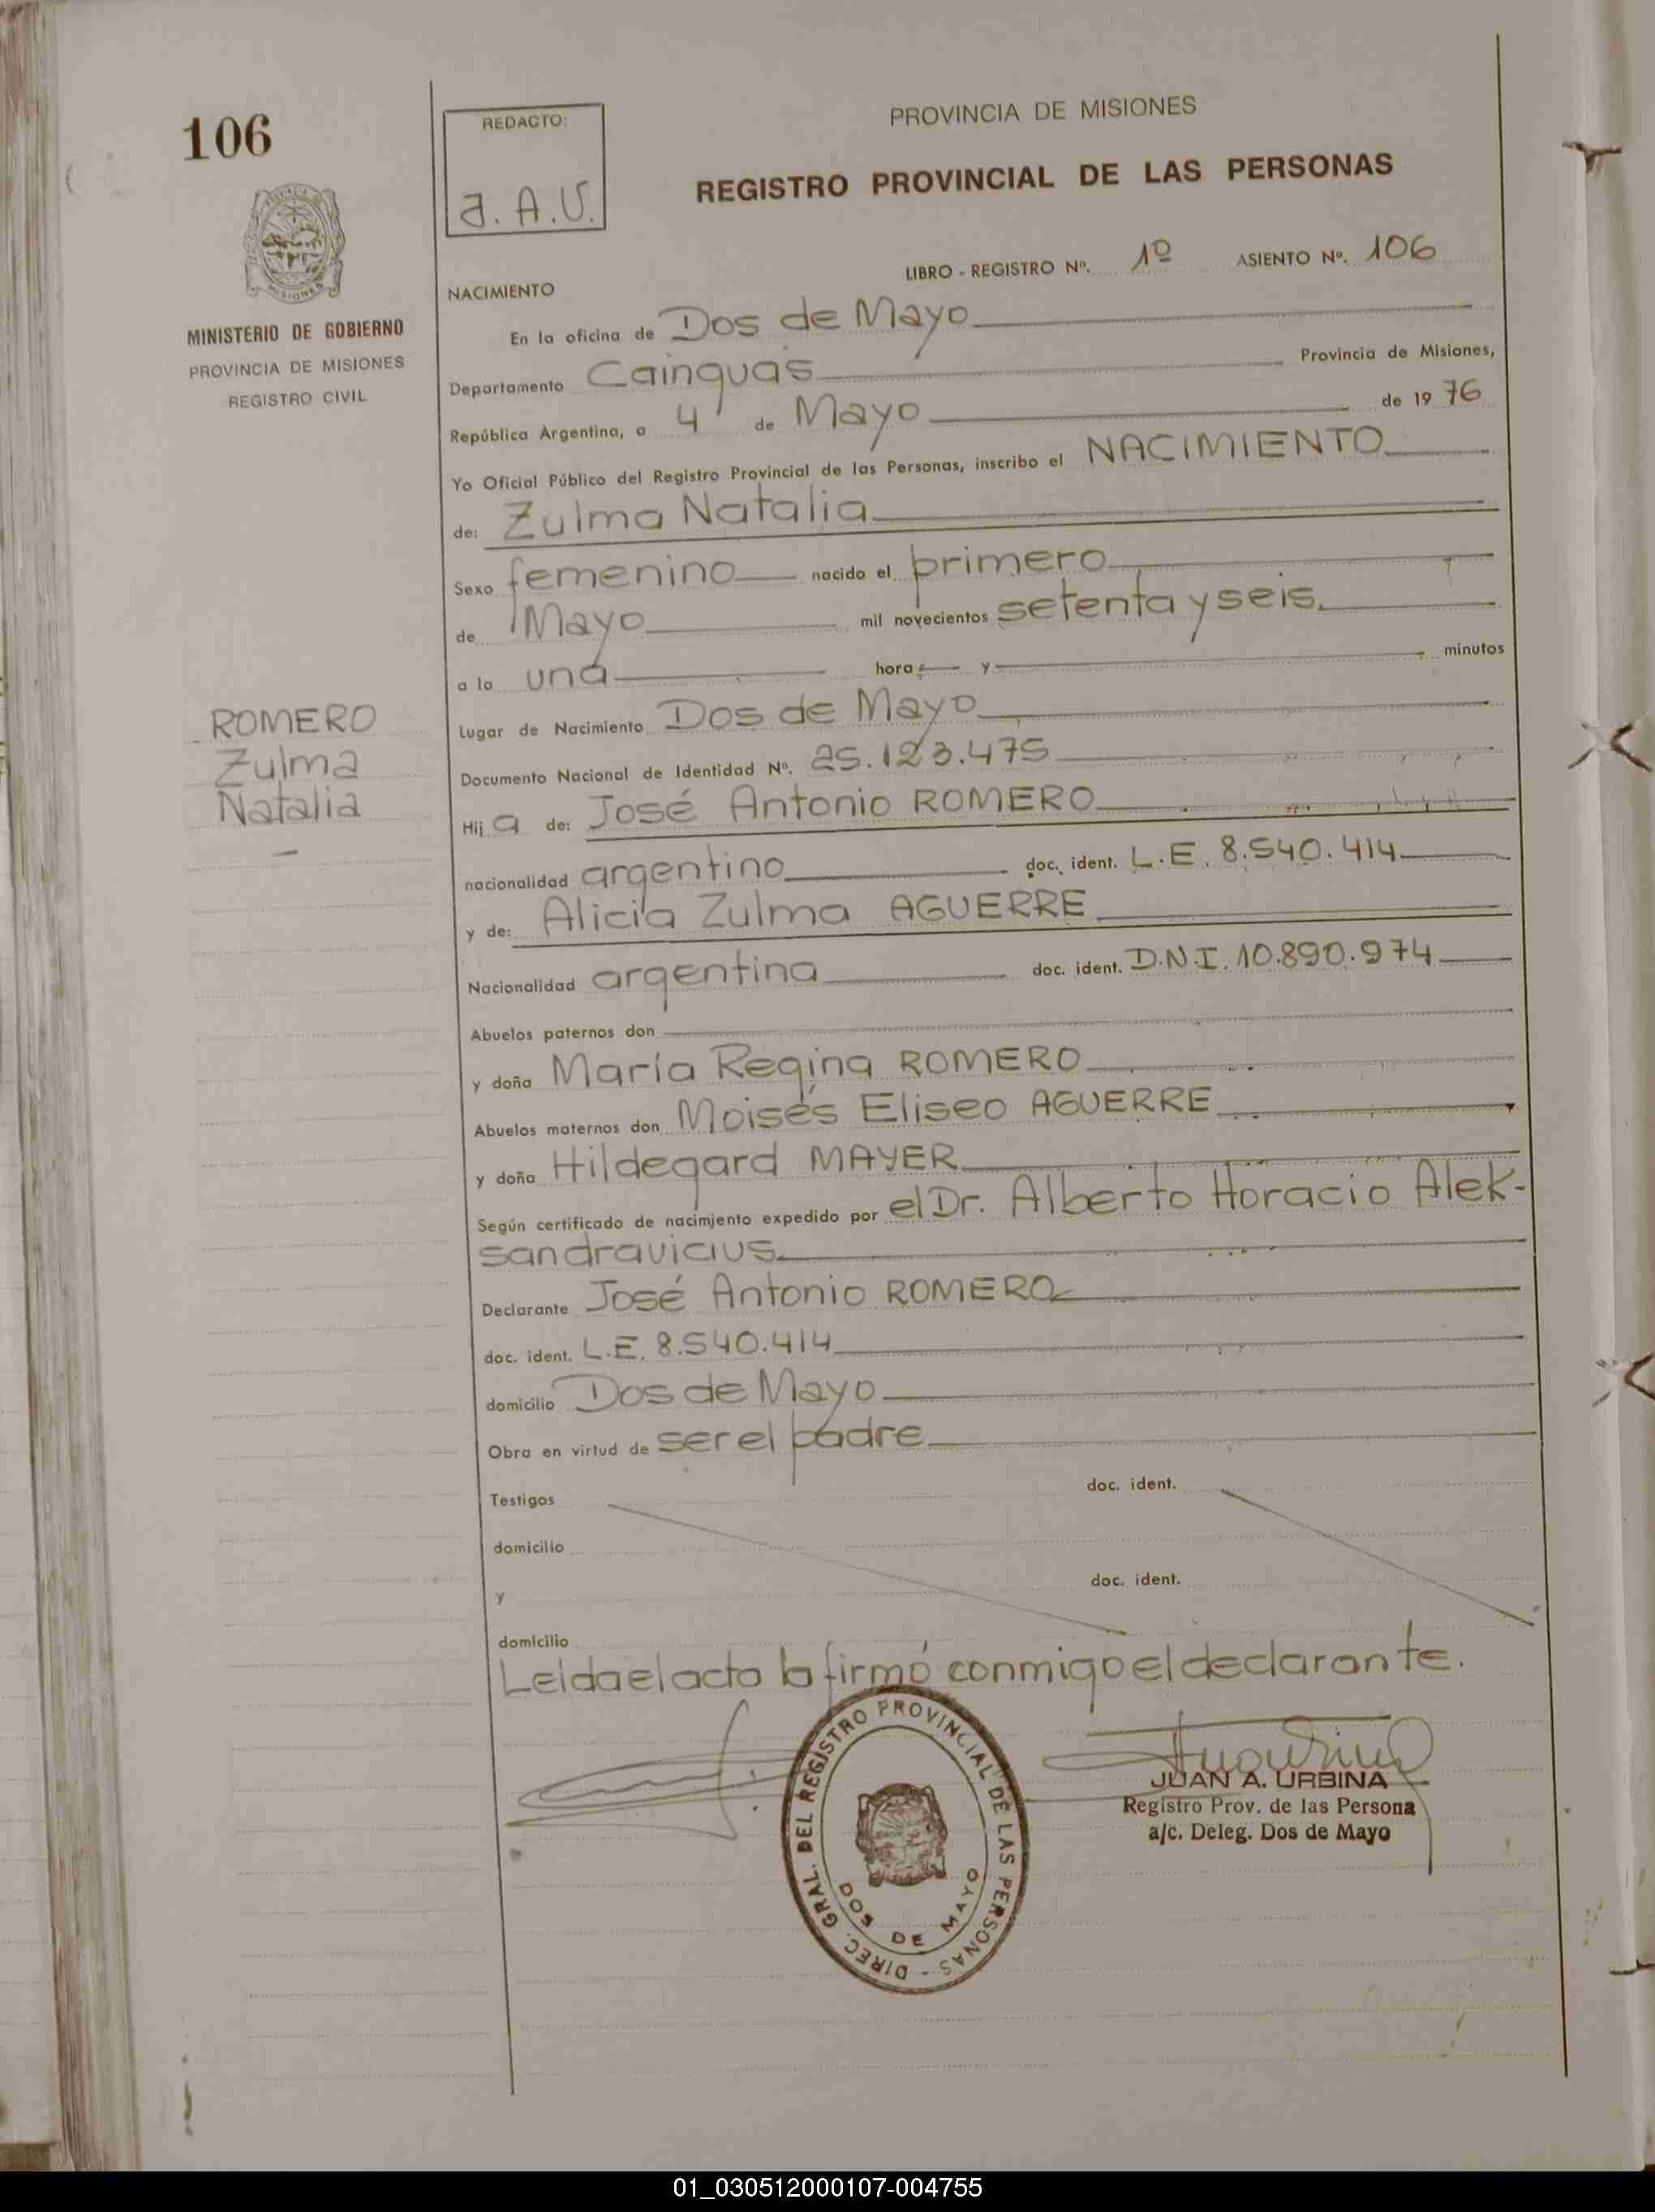 106
PROVINCIA DE MISIONES
MINISTERIO DE GOBIERNO
PROVINCIA DE MISIONES
REGISTRO CIVIL
ROMERO
Zulma
Natalia
REDACTO:
J. A. U.
PROVINCIA DE MISIONES
REGISTRO PROVINCIAL DE LAS PERSONAS
LIBRO - REGISTRO Nº. 1º ASIENTO Nº. 106
NACIMIENTO
En la oficina de Dos de Mayo
Departamento Cainguás Provincia de Misiones,
República Argentina, a 4 de Mayo de 19 76
Yo Oficial Público del Registro Provincial de las Personas, inscribo el NACIMIENTO
de: Zulma Natalia
Sexo femenino nacido el primero
de Mayo mil novecientos setenta y seis.
a la una hora y minutos
Lugar de Nacimiento Dos de Mayo
Documento Nacional de Identidad Nº. 25.123.475
Hij a de: José Antonio ROMERO
nacionalidad argentino doc. ident. L.E. 8.540.414
y de: Alicia Zulma AGUERRE
Nacionalidad argentina doc. ident. D.N.I. 10.890.974
Abuelos paternos don
y doña María Regina ROMERO
Abuelos maternos don Moisés Eliseo AGUERRE
y doña Hildegard MAYER
Según certificado de nacimiento expedido por el Dr. Alberto Horacio Alek-
sandravicius
Declarante José Antonio ROMERO
doc. ident. L.E. 8.540.414
domicilio Dos de Mayo
Obra en virtud de ser el padre
Testigos doc. ident.
domicilio
y doc. ident.
domicilio
Leida el acto lo firmó conmigo el declarante.
DIREC. GRAL. DEL REGISTRO PROVINCIAL DE LAS PERSONAS -
DOS DE MAYO
JUAN A. URBINA
Registro Prov. de las Persona
a/c. Deleg. Dos de Mayo
01_030512000107-004755